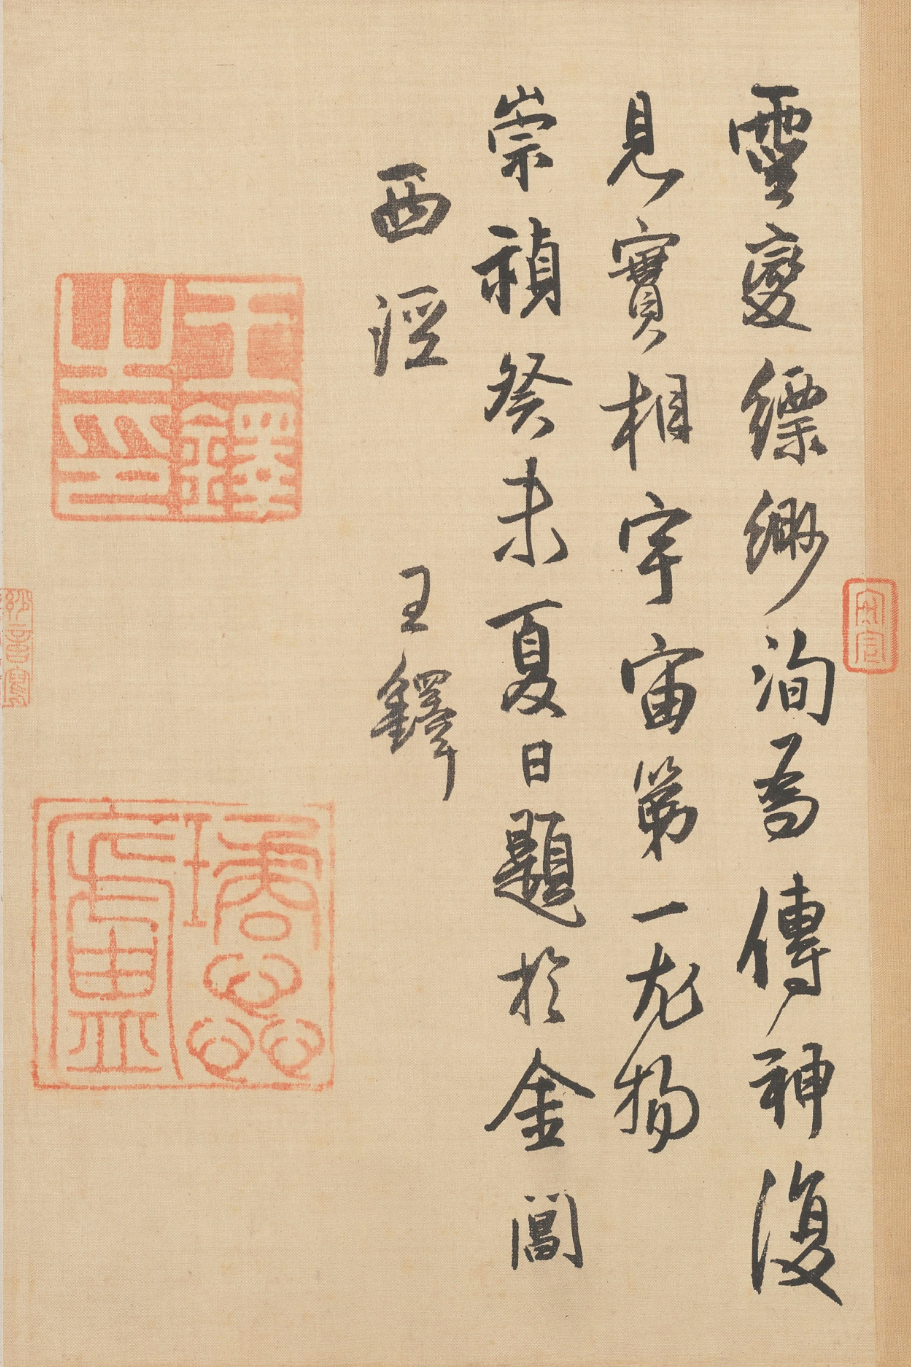 靈變縹緲洵為傳神復
見寶相宇宙第一尤物
崇禎癸未夏日題於金閶
西涇
王鐸
王鐸之印